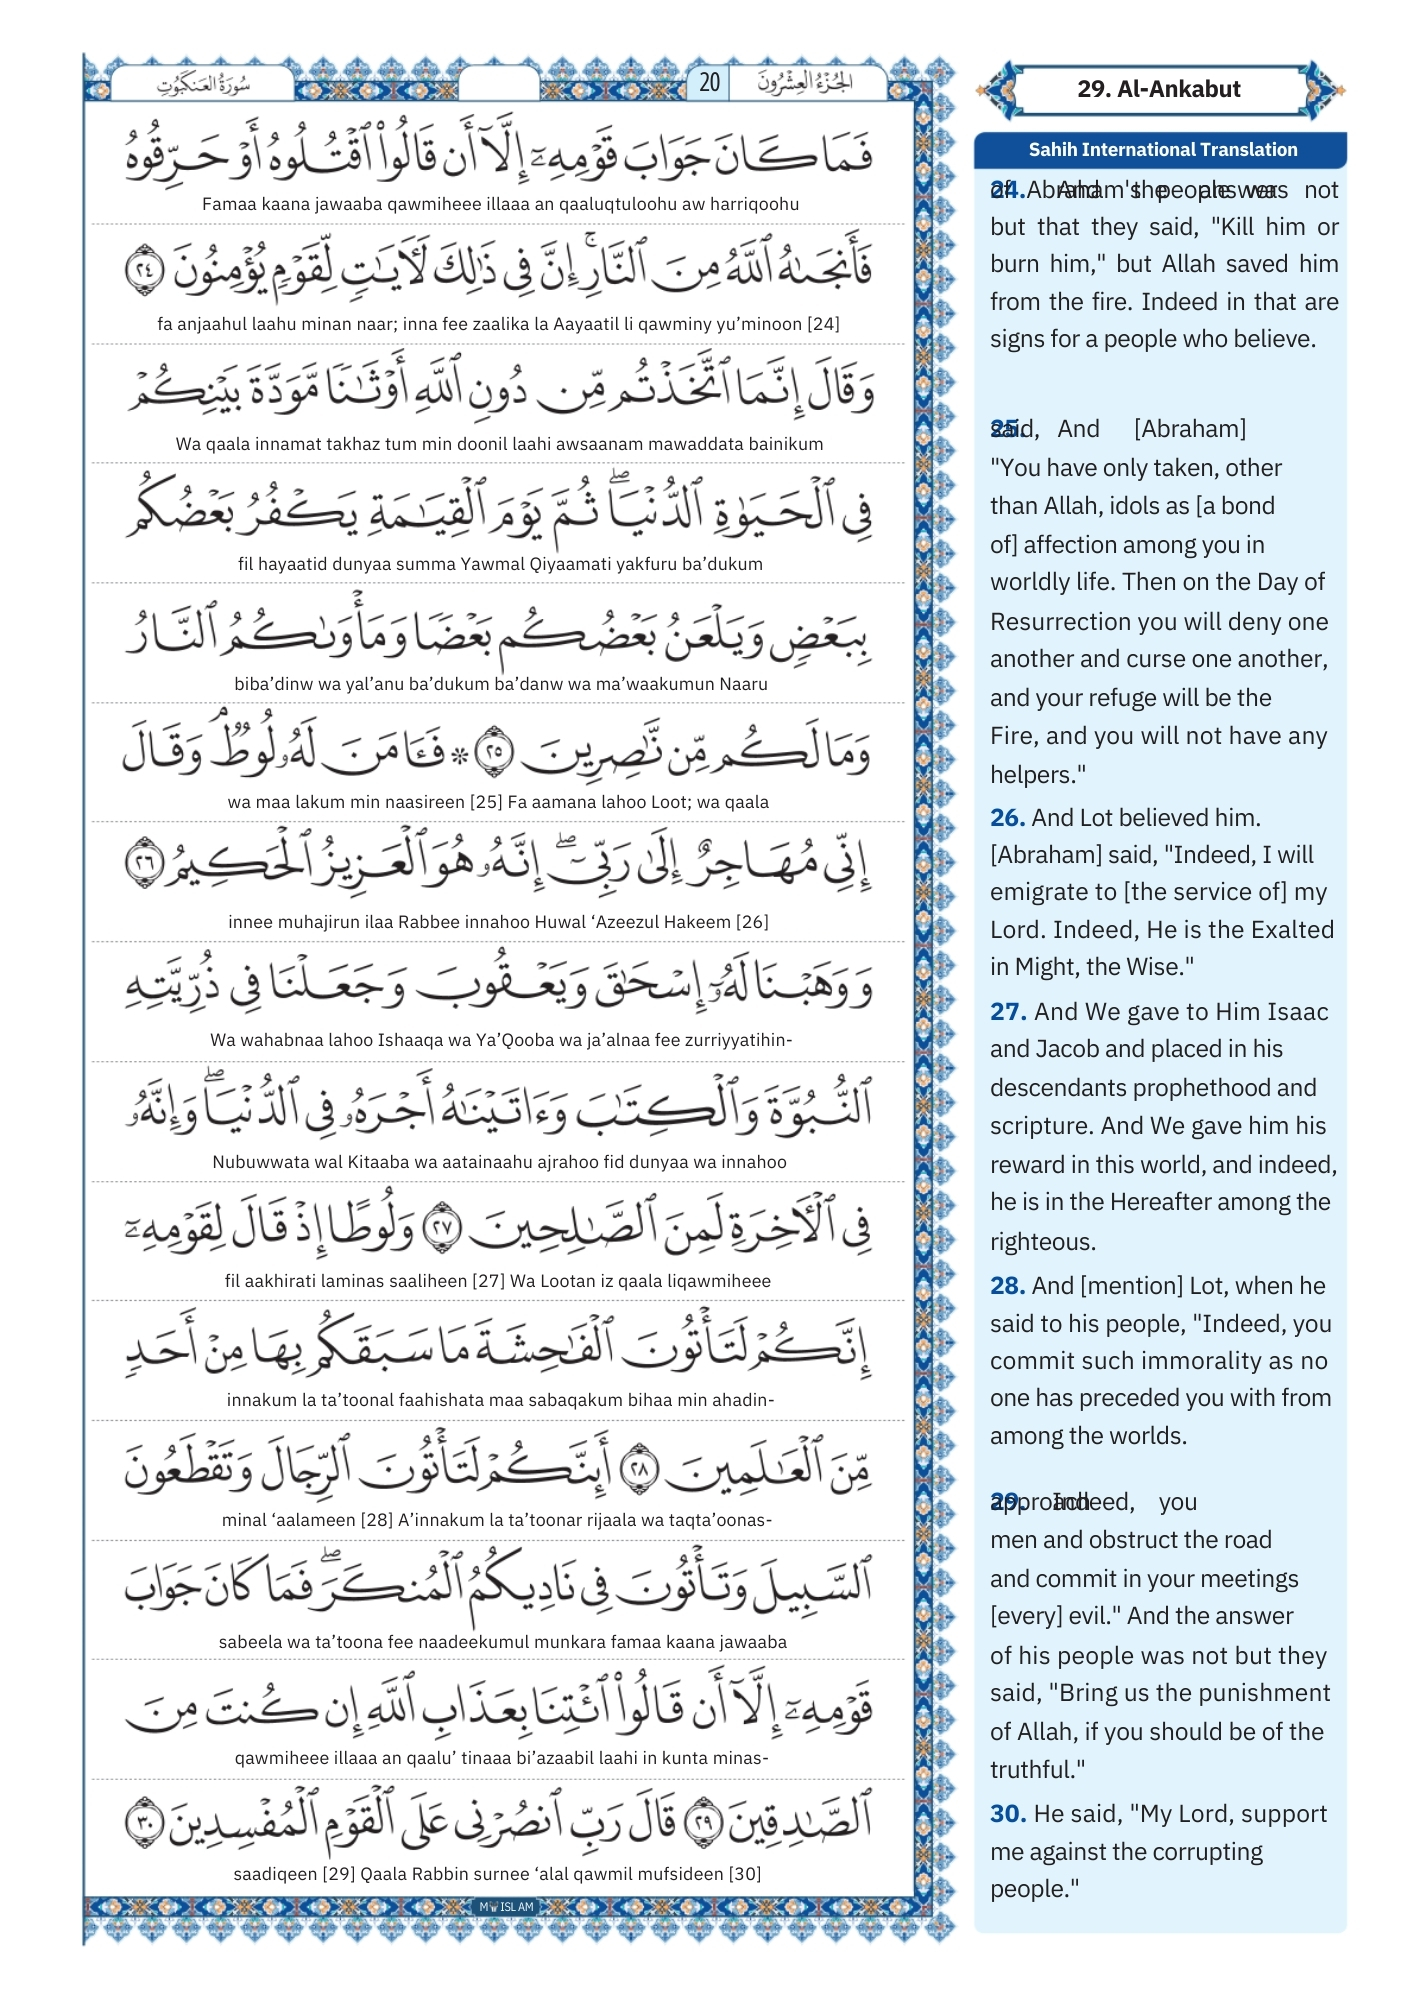 سُورَةُ العَنكَبُوتِ
20
الجُزْءُ العِشْرُونَ
فَمَا كَانَ جَوَابَ قَوْمِهِۦٓ إِلَّآ أَن قَالُوا۟ ٱقْتُلُوهُ أَوْ حَرِّقُوهُ
Famaa kaana jawaaba qawmiheee illaaa an qaaluqtuloohu aw harriqoohu
فَأَنجَىٰهُ ٱللَّهُ مِنَ ٱلنَّارِ ۚ إِنَّ فِى ذَٰلِكَ لَـَٔايَـٰتٍ لِّقَوْمٍ يُؤْمِنُونَ ٢٤
fa anjaahul laahu minan naar; inna fee zaalika la Aayaatil li qawminy yu’minoon [24]
وَقَالَ إِنَّمَا ٱتَّخَذْتُم مِّن دُونِ ٱللَّهِ أَوْثَـٰنًا مَّوَدَّةَ بَيْنِكُمْ
Wa qaala innamat takhaz tum min doonil laahi awsaanam mawaddata bainikum
فِى ٱلْحَيَوٰةِ ٱلدُّنْيَا ۖ ثُمَّ يَوْمَ ٱلْقِيَـٰمَةِ يَكْفُرُ بَعْضُكُم
fil hayaatid dunyaa summa Yawmal Qiyaamati yakfuru ba’dukum
بِبَعْضٍ وَيَلْعَنُ بَعْضُكُم بَعْضًا وَمَأْوَىٰكُمُ ٱلنَّارُ
biba’dinw wa yal’anu ba’dukum ba’danw wa ma’waakumun Naaru
وَمَا لَكُم مِّن نَّـٰصِرِينَ ٢٥ * فَـَٔامَنَ لَهُۥ لُوطٌ ۘ وَقَالَ
wa maa lakum min naasireen [25] Fa aamana lahoo Loot; wa qaala
إِنِّى مُهَاجِرٌ إِلَىٰ رَبِّىٓ ۖ إِنَّهُۥ هُوَ ٱلْعَزِيزُ ٱلْحَكِيمُ ٢٦
innee muhajirun ilaa Rabbee innahoo Huwal ‘Azeezul Hakeem [26]
وَوَهَبْنَا لَهُۥٓ إِسْحَـٰقَ وَيَعْقُوبَ وَجَعَلْنَا فِى ذُرِّيَّتِهِ
Wa wahabnaa lahoo Ishaaqa wa Ya’Qooba wa ja’alnaa fee zurriyyatihin-
ٱلنُّبُوَّةَ وَٱلْكِتَـٰبَ وَءَاتَيْنَـٰهُ أَجْرَهُۥ فِى ٱلدُّنْيَا ۖ وَإِنَّهُۥ
Nubuwwata wal Kitaaba wa aatainaahu ajrahoo fid dunyaa wa innahoo
فِى ٱلْـَٔاخِرَةِ لَمِنَ ٱلصَّـٰلِحِينَ ٢٧ وَلُوطًا إِذْ قَالَ لِقَوْمِهِۦٓ
fil aakhirati laminas saaliheen [27] Wa Lootan iz qaala liqawmiheee
إِنَّكُمْ لَتَأْتُونَ ٱلْفَـٰحِشَةَ مَا سَبَقَكُم بِهَا مِنْ أَحَدٍ
innakum la ta’toonal faahishata maa sabaqakum bihaa min ahadin-
مِّنَ ٱلْعَـٰلَمِينَ ٢٨ أَئِنَّكُمْ لَتَأْتُونَ ٱلرِّجَالَ وَتَقْطَعُونَ
minal ‘aalameen [28] A’innakum la ta’toonar rijaala wa taqta’oonas-
ٱلسَّبِيلَ وَتَأْتُونَ فِى نَادِيكُمُ ٱلْمُنكَرَ ۖ فَمَا كَانَ جَوَابَ
sabeela wa ta’toona fee naadeekumul munkara famaa kaana jawaaba
قَوْمِهِۦٓ إِلَّآ أَن قَالُوا۟ ٱئْتِنَا بِعَذَابِ ٱللَّهِ إِن كُنتَ مِنَ
qawmiheee illaaa an qaalu’ tinaaa bi’azaabil laahi in kunta minas-
ٱلصَّـٰدِقِينَ ٢٩ قَالَ رَبِّ ٱنصُرْنِى عَلَى ٱلْقَوْمِ ٱلْمُفْسِدِينَ ٣٠
saadiqeen [29] Qaala Rabbin surnee ‘alal qawmil mufsideen [30]
29. Al-Ankabut
Sahih International Translation
24. And the answer of Abraham's people was not
but that they said, "Kill him or
burn him," but Allah saved him
from the fire. Indeed in that are
signs for a people who believe.
25. And [Abraham] said,
"You have only taken, other
than Allah, idols as [a bond
of] affection among you in
worldly life. Then on the Day of
Resurrection you will deny one
another and curse one another,
and your refuge will be the
Fire, and you will not have any
helpers."
26. And Lot believed him.
[Abraham] said, "Indeed, I will
emigrate to [the service of] my
Lord. Indeed, He is the Exalted
in Might, the Wise."
27. And We gave to Him Isaac
and Jacob and placed in his
descendants prophethood and
scripture. And We gave him his
reward in this world, and indeed,
he is in the Hereafter among the
righteous.
28. And [mention] Lot, when he
said to his people, "Indeed, you
commit such immorality as no
one has preceded you with from
among the worlds.
29. Indeed, you approach
men and obstruct the road
and commit in your meetings
[every] evil." And the answer
of his people was not but they
said, "Bring us the punishment
of Allah, if you should be of the
truthful."
30. He said, "My Lord, support
me against the corrupting
people."